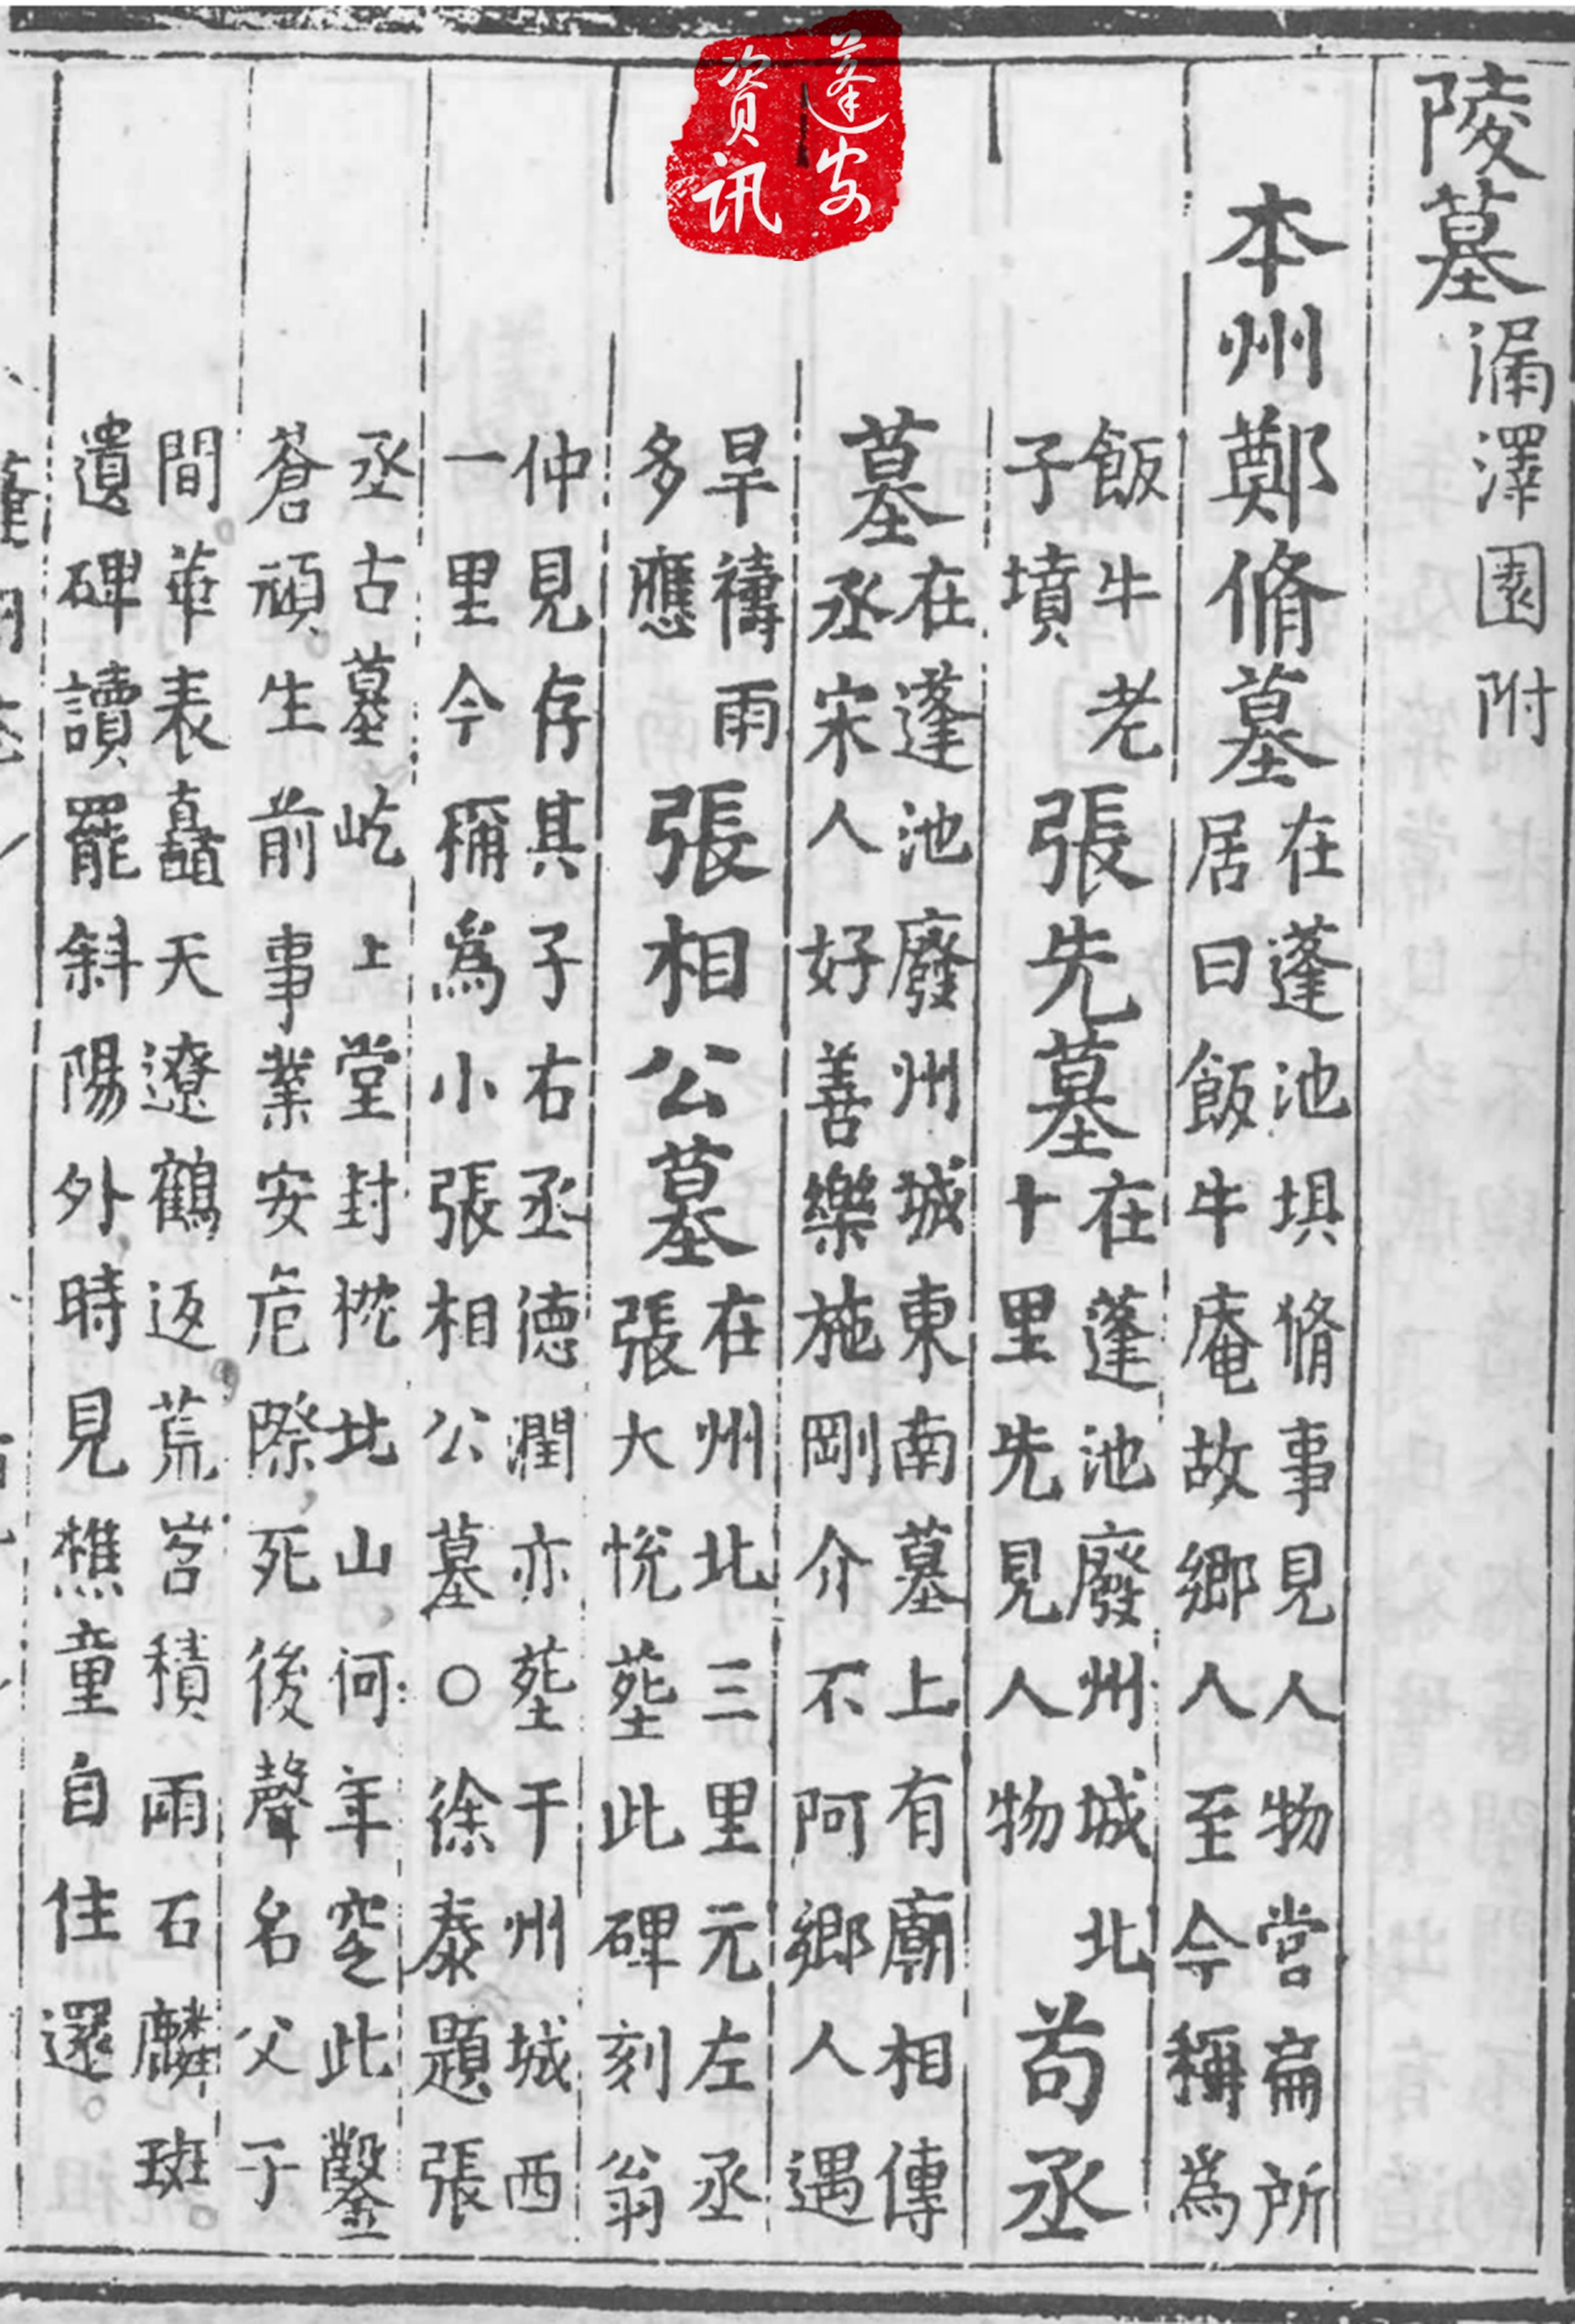 陵墓漏澤園附
本州鄭脩墓在蓬池垻脩事見人物嘗扁所
居曰飯牛庵故鄉人至今稱爲
飯牛老
子墳
張先墓在蓬池廢州城北
十里先見人物
苟丞
墓在蓬池廢州城東南墓上有廟相傳
丞宋人好善樂施剛介不阿鄉人遇
旱禱雨
多應
張相公墓在州北三里元左丞
張大悅塟此碑刻翁
仲見存其子右丞德潤亦塟于州城西
一里今稱爲小張相公墓○徐泰題張
丞古墓屹上堂封枕北山何年窆此鑿
蒼頑生前事業安危際死後聲名父子
間華表矗天遼鶴返荒岩積雨石麟斑
遺碑讀罷斜陽外時見樵童自住還
蓬安
資訊